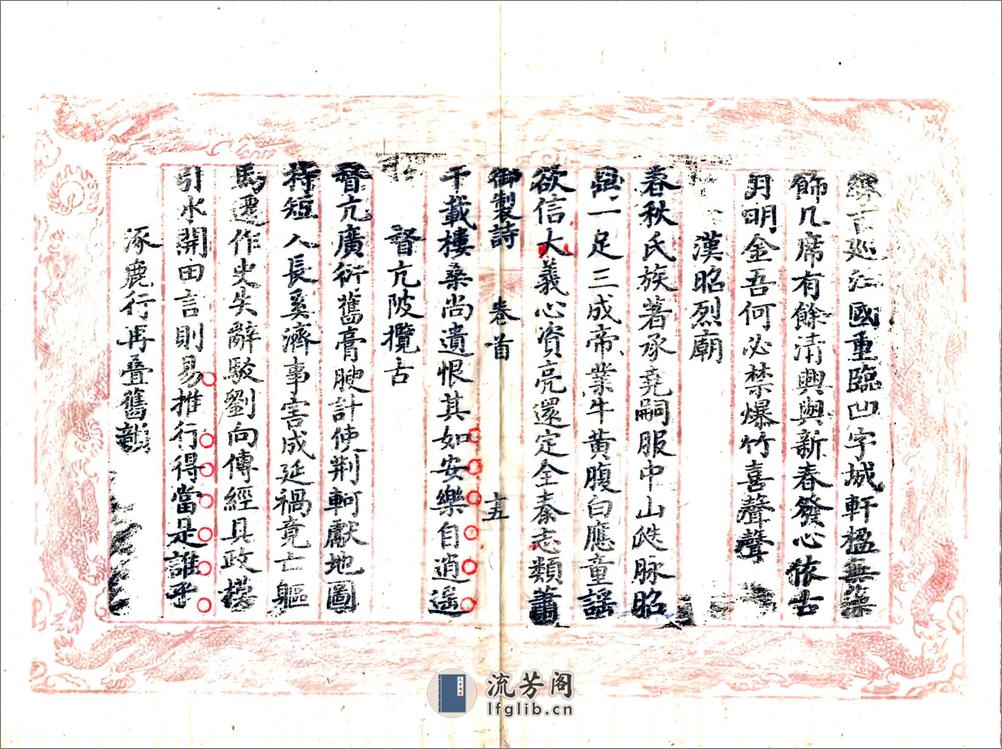 國重臨凹字城軒楹無藻
飾几席有餘清興與新春發心依古
月明金吾何必禁爆竹喜聲聲
漢昭烈廟
春秋氏族著承堯嗣服中山脉昭
鼎一足三成帝業牛黃腹白應童謠
欲信大義心資亮還定全秦志類蕭
御製詩 卷首 十五
千載樓桑尚遺恨其如安樂自逍遥
督亢陂攬古
督亢廣衍舊膏腴計使荆軻獻地圖
持短入長奚濟事害成延禍竟亡軀
馬遷作史失辭駁劉向傳經具政模
引水開田言則易推行得當是誰乎
涿鹿行再叠舊韻
流芳阁
lfglib.cn